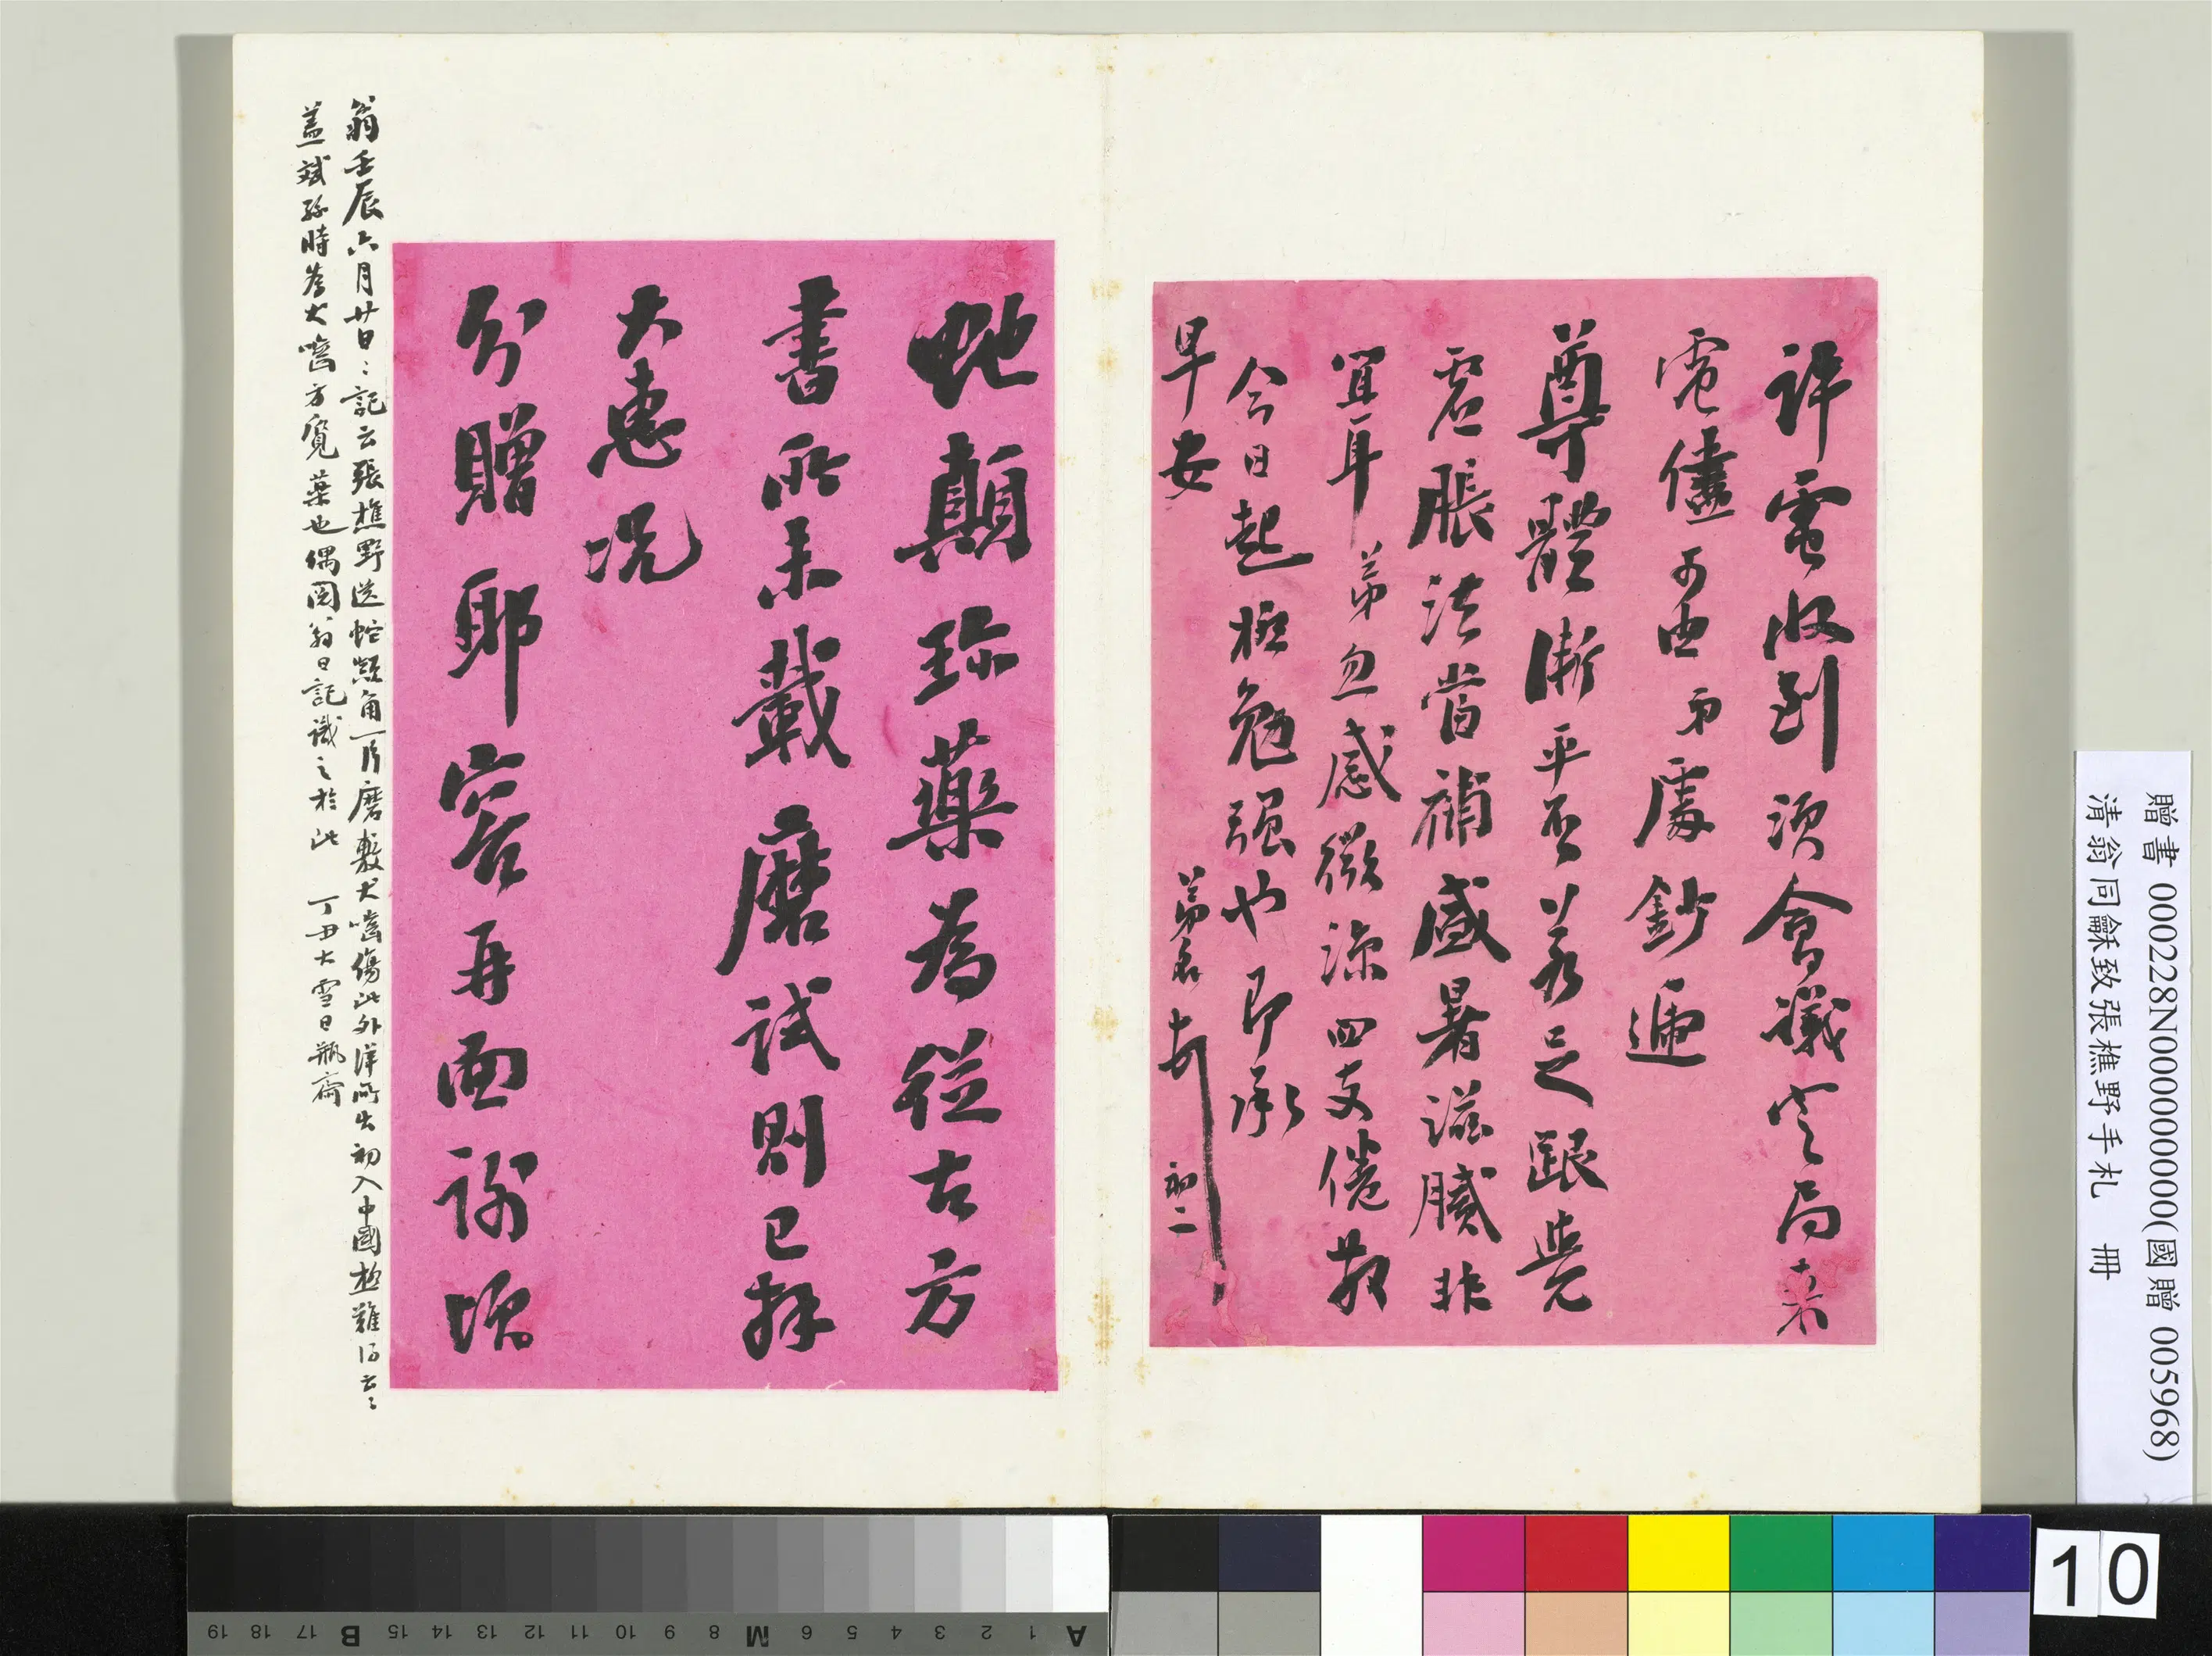 許電收到須會議定局東
電儘可由弟處鈔遞
尊體漸平否若足跟覺
虛脹法當補盛暑滋膩非
宜耳弟忽感微涼四支倦軟
今日起極勉强也即承
早安
弟名 初二
蛇顛珍藥為從古方
書所未載磨試則已拜
大惠况
分贈耶容再面謝頌
翁壬辰六月廿日日記云張樵野送蛇顛角一片磨敷犬嚙傷此外洋所出初入中國極難得云云
蓋斌孫時為犬嚙方覓藥也偶閱翁日記識之於此 丁丑大雪日瓶齋
贈書 000228N000000000(國贈 005968)
清翁同龢致張樵野手札 冊
10
A 1 2 3 4 5 6 M 8 9 10 11 12 13 14 15 B 17 18 19